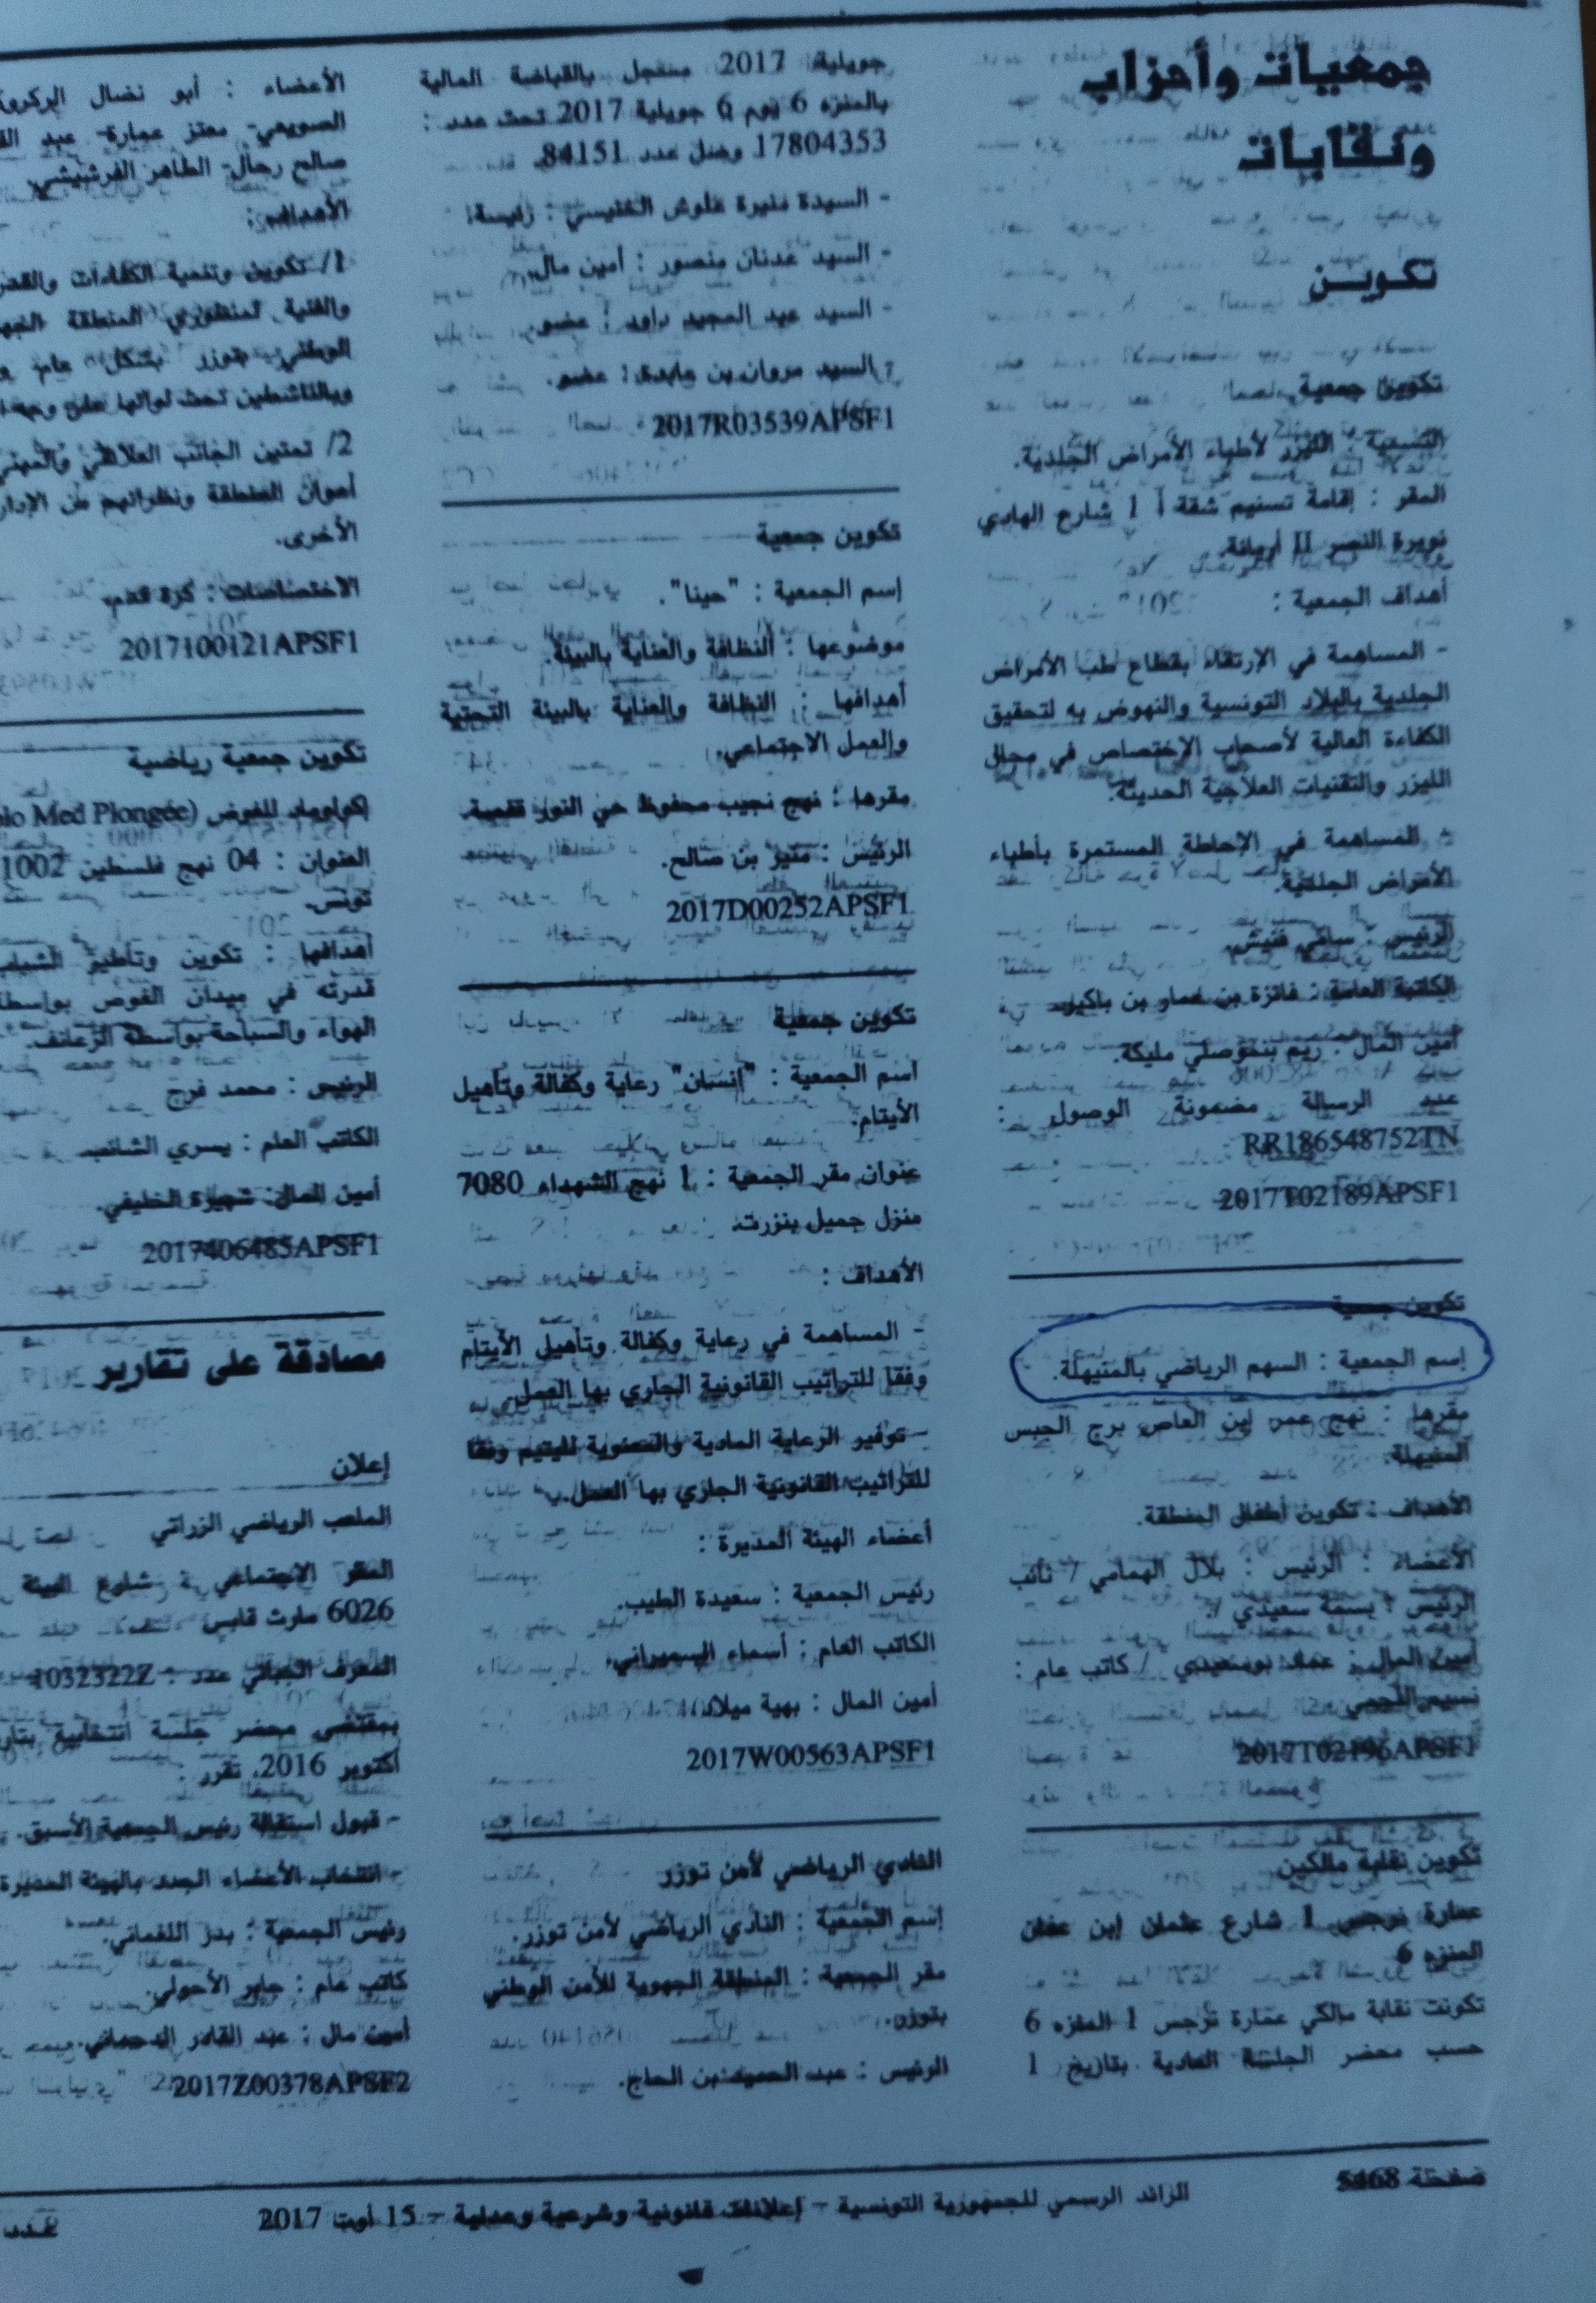 جمعيات وأحزاب
ونقابات
تكويـن
تكوين جمعية
التسمية : الليزر لأطباء الأمراض الجلدية.
المقر : إقامة تسنيم شقة أ 1 شارع الهادي
نويرة النصر II أريانة.
أهداف الجمعية :
- المساهمة في الإرتقاء بقطاع طب الأمراض
الجلدية بالبلاد التونسية والنهوض به لتحقيق
الكفاءة العالية لأصحاب الإختصاص في مجال
الليزر والتقنيات العلاجية الحديثة.
- المساهمة في الإحاطة المستمرة بأطباء
الأمراض الجلدية.
الرئيس : سامي فنيش.
الكاتبة العامة : فائزة بن عمار بن باكير.
أمين المال : ريم بنموصلي مليكة.
عدد الرسالة مضمونة الوصول :
RR186548752TN
2017T02189APSF1
تكوين جمعية
إسم الجمعية : السهم الرياضي بالمنيهلة.
مقرها : نهج عمر ابن العاص برج الحبس
المنيهلة.
الأهداف : تكوين أطفال المنطقة.
الأعضاء : الرئيس : بلال الهمامي / نائب
الرئيس : بسمة سعيدي /
أمين المال : عماد بوسعيدي / كاتب عام :
نسيم اللجمي
2017T02196APSF1
تكوين نقابة مالكين
عمارة نرجس 1 شارع عثمان ابن عفان
المنزه 6
تكونت نقابة مالكي عمارة نرجس 1 المنزه 6
حسب محضر الجلسة العادية بتاريخ 1
جويلية 2017 مسجل بالقباضة المالية
بالمنزه 6 يوم 6 جويلية 2017 تحت عدد :
17804353 وصل عدد 84151.
- السيدة منيرة علوش الخنيسي : رئيسة.
- السيد عدنان منصور : أمين مال.
- السيد عبد المجيد داود : عضو.
- السيد مروان بن عابدة : عضو.
2017R03539APSF1
تكوين جمعية
إسم الجمعية : "حينا".
موضوعها : النظافة والعناية بالبيئة.
أهدافها : النظافة والعناية بالبيئة التحتية
والعمل الاجتماعي.
مقرها : نهج نجيب محفوظ حي النور قفصة.
الرئيس : منير بن صالح.
2017D00252APSF1
تكوين جمعية
اسم الجمعية : "إنسان" رعاية وكفالة وتأهيل
الأيتام.
عنوان مقر الجمعية : 1 نهج الشهداء 7080
منزل جميل بنزرت.
الأهداف :
- المساهمة في رعاية وكفالة وتأهيل الأيتام
وفقا للتراتيب القانونية الجاري بها العمل.
- توفير الرعاية المادية والمعنوية لليتيم وفقا
للتراتيب القانونية الجاري بها العمل.
أعضاء الهيئة المديرة :
رئيس الجمعية : سعيدة الطيب.
الكاتب العام : أسماء السميراني.
أمين المال : بهية ميلاد.
2017W00563APSF1
النادي الرياضي لأمن توزر
إسم الجمعية : النادي الرياضي لأمن توزر.
مقر الجمعية : المنطقة الجهوية للأمن الوطني
بتوزر.
الرئيس : عبد الحميد بن الحاج.
الأعضاء : أبو نضال
معتز عمارة- عبد
صالح رحال- الطاهر الفرشيشي
الأهداف :
1/ تكوين وتنمية الكفاءات
والفنية لمنظوري المنطقة
الوطني بتوزر بشكل عام
وبالناشطين تحت لوائها على وجه
2/ تمتين الجانب العلائقي
أعوان المنطقة ونظرائهم من
الأخرى.
الاختصاصات : كرة قدم.
2017100121APSF1
تكوين جمعية رياضية
للغوص (Med Plongée
العنوان : 04 نهج فلسطين 1002
تونس.
أهدافها : تكوين وتأطير الشباب
قدرته في ميدان الغوص
الهواء والسباحة بواسطة الزعانف.
الرئيس : محمد فرج
الكاتب العام : يسري الشائب
أمين المال : شهيرة الخليفي.
2017406485APSF1
مصادقة على تقارير
إعلان
الملعب الرياضي الزراتي
المقر الاجتماعي : شارع البيئة
6026 مارث قابس
المعرف الجبائي عدد : 1032322Z
بمقتضى محضر جلسة انتخابية
أكتوبر 2016، تقرر :
- قبول استقالة رئيس الجمعية الأسبق.
- انتخاب الأعضاء الجدد بالهيئة المديرة
رئيس الجمعية : بدر اللغماني.
كاتب عام : جابر الأحولي.
أمين مال : عبد القادر الدحماني.
2017Z00378APSF2
صفحة 5468
الرائد الرسمي للجمهورية التونسية – إعلانات قانونية وشرعية وعدلية – 15 أوت 2017
عدد